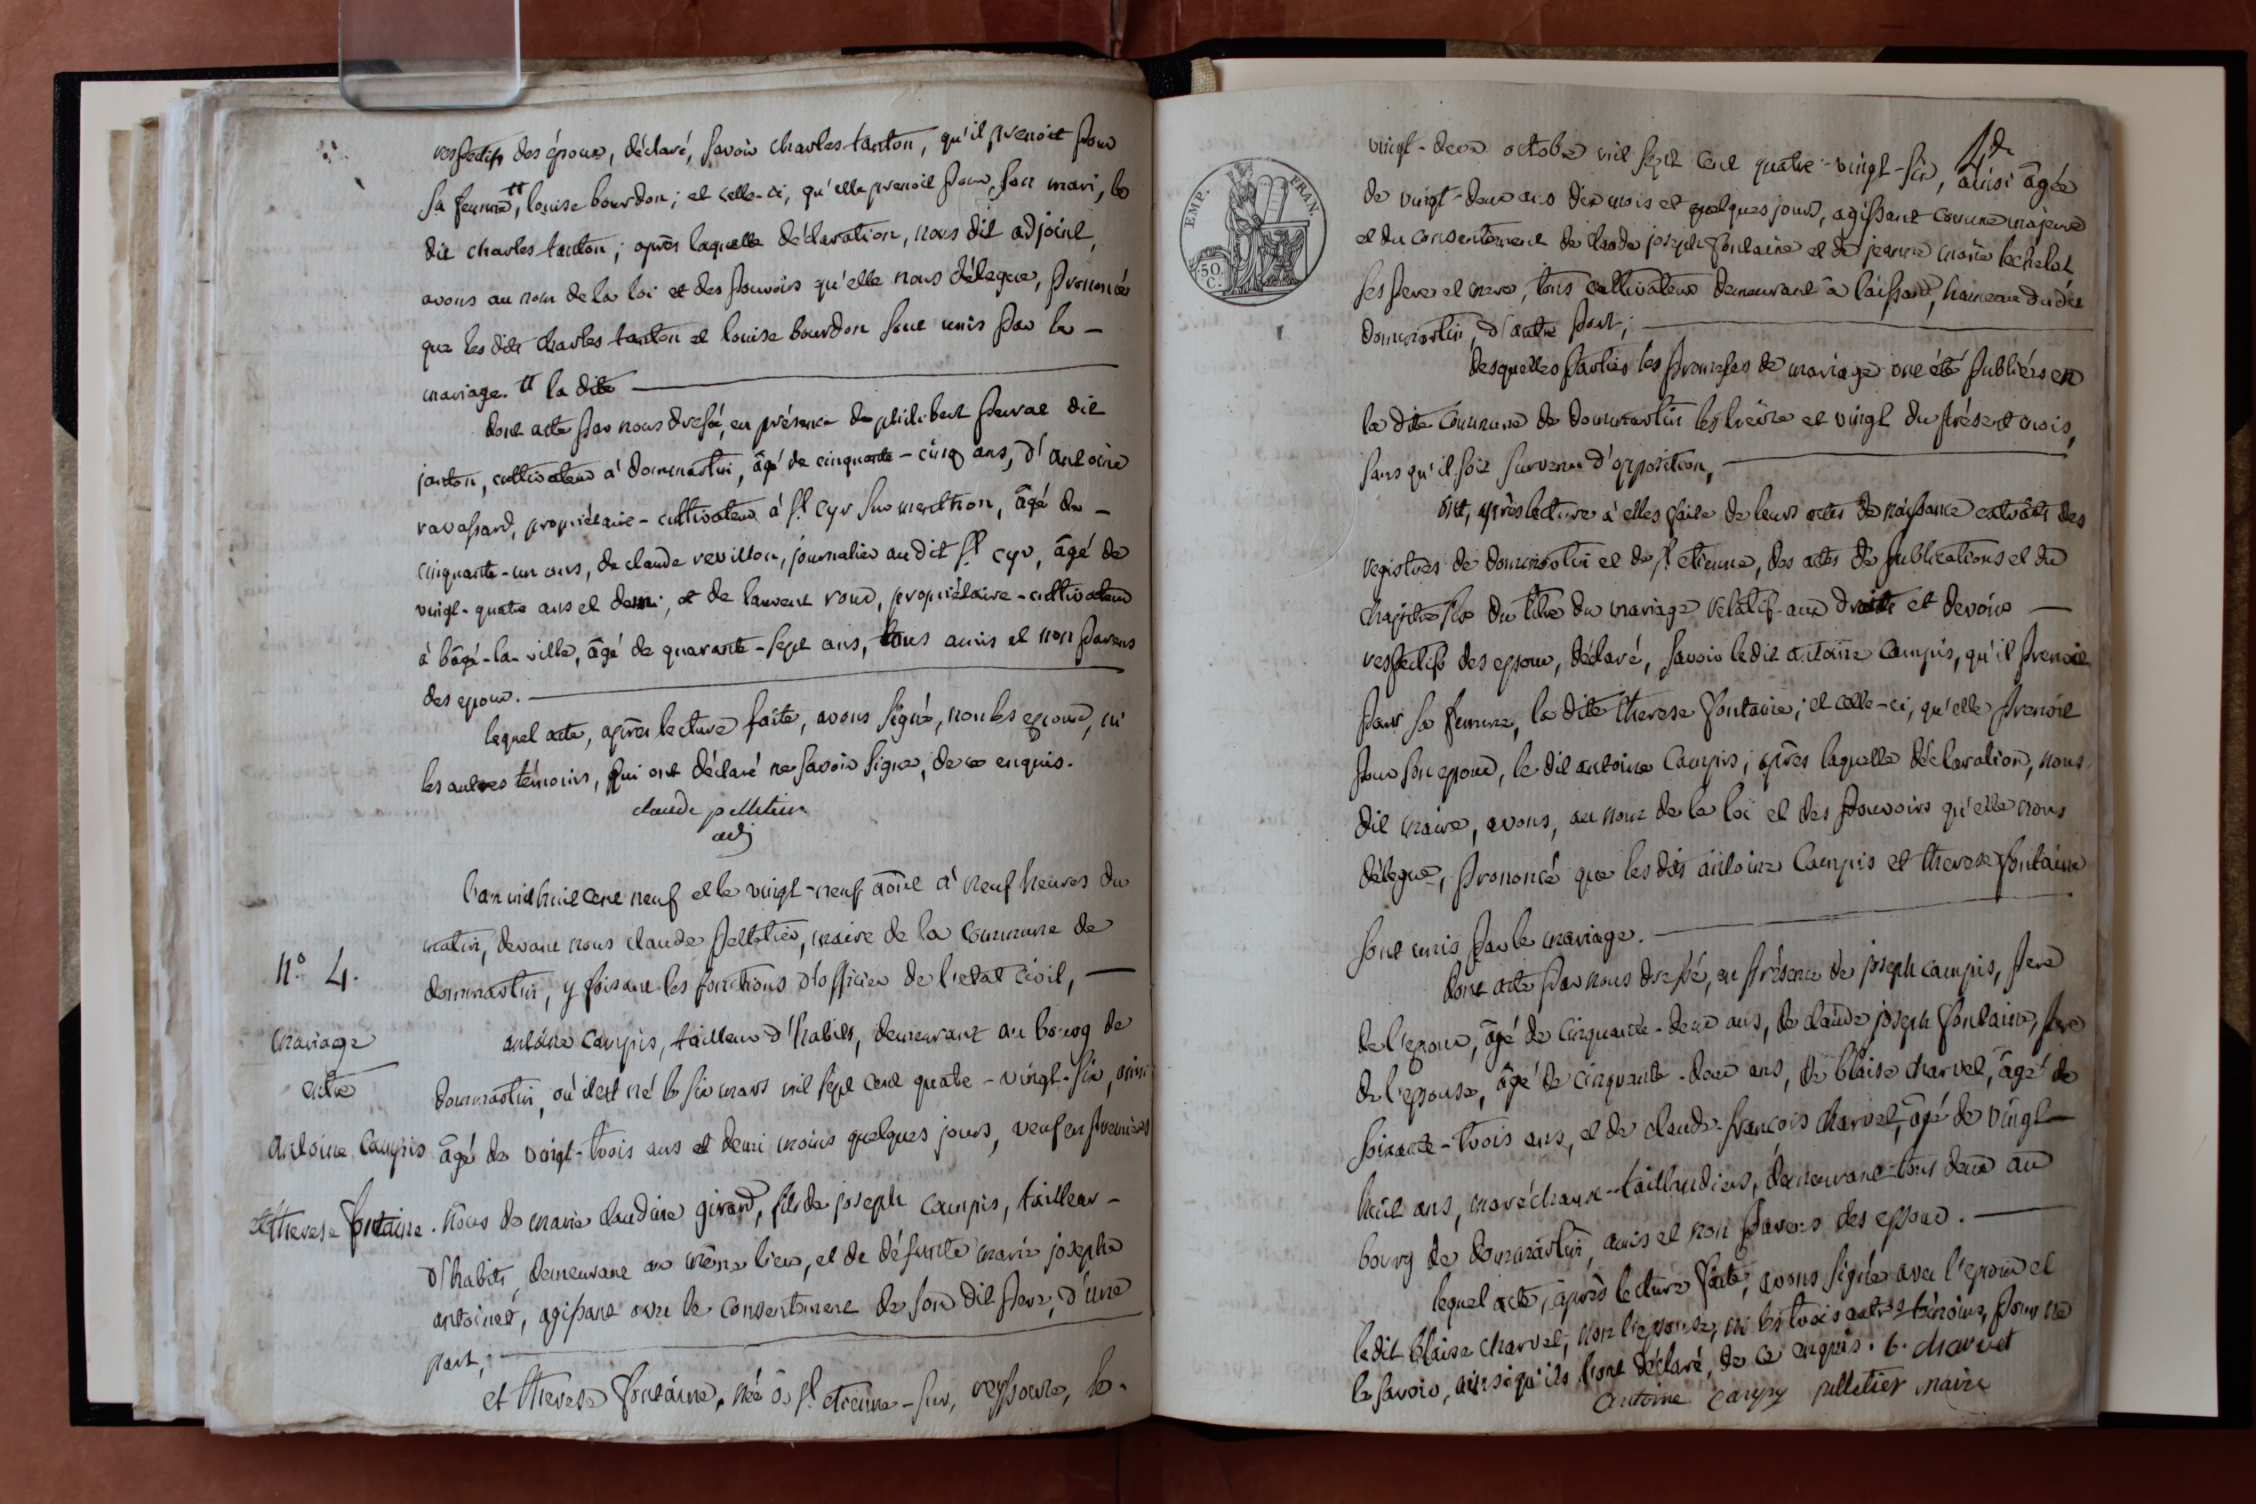 respectifs des époux, déclaré, savoir charles tanton, qu'il prenoit pour
sa femme tt, louise bourdon; et celle-ci, qu'elle prenoit pour son mari, le
dit charles tanton; après laquelle déclaration, nous dit adjoint,
avons au nom de la loi et des pouvoirs qu'elle nous délegue, prononcé
que les dits charles tanton et louise bourdon sont unis par le -
mariage. tt la dite
dont acte par nous dressé, en présence de philibert perrat dit
janton, cultivateur à dommartin, âgé de cinquante-cinq ans, d'antoine
ravassard, propriétaire-cultivateur à st. cyr sur menthon, âgé de -
cinquante-un ans, de claude revillon, journalier au dit st. cyr, âgé de
vingt-quatre ans et demi, et de laurent roux, propriétaire-cultivateur
à bâgé-la-ville, âgé de quarante-sept ans, tous amis et non parens
des epoux.
lequel acte, après lecture faite, avons signé, non les epoux, ni
les autres témoins, qui ont déclaré ne savoir signer, de ce enquis.
claude pelletier
adj
l'an mil huit cent neuf et le vingt-neuf août à neuf heures du
matin, devant nous claude pelletier, maire de la commune de
n.° 4.
dommartin, y faisant les fonctions d'officier de l'etat civil,
mariage
antoine campis, tailleur d'habits, demeurant au bourg de
entre
dommartin, où il est né le six mars mil sept cent quatre-vingt-six, ainsi
antoine campis
âgé de vingt-trois ans et demi moins quelques jours, veuf en premières
et therese fontaine.
nôces de marie claudine girard, fils de joseph campis, tailleur -
d'habits, demeurant au même lieu, et de défunte marie josephe
antoinet, agissant avec le consentement de son dit pere, d'une
part;
et therese fontaine, née à st. etienne-sur, reyssouze, le.
4e
EMP. FRAN.
50.
C.
vingt-deux octobre mil sept cent quatre-vingt-six, ainsi âgée
de vingt-deux ans dix mois et quelques jours, agissant comme majeure
et du consentement de claude joseph fontaine et de jeanne marie bechelat
ses pere et mere, tous cultivateurs demeurant à laissard, hameau du dit
dommartin, d'autre part;
desquelles parties les promesses de mariage ont été publiées en
la dite commune de dommartin les treize et vingt du présent mois,
sans qu'il soit survenu d'opposition,
ont, après lecture à elles faite de leurs actes de naissance extraits des
registres de dommartin et de st. etienne, des actes de publications et du
chapitre six du titre du mariage relatif aux droits et devoirs
respectifs des epoux, déclaré, savoir le dit antoine campis, qu'il prenoit
pour sa femme, la dite therese fontaine; et celle-ci, qu'elle prenoit
pour son epoux, le dit antoine campis; après laquelle déclaration, nous
dit maire, avons, au nom de la loi et des pouvoirs qu'elle nous
délegue, prononcé que les dits antoine campis et therese fontaine
sont unis par le mariage.
dont acte par nous dressé, en présence de joseph campis, pere
de l'epoux, âgé de cinquante-deux ans, de claude joseph fontaine, pere
de l'epouse, âgé de cinquante-deux ans, de blaise charvet, âgé de
soixante-trois ans, et de claude-françois charvet, âgé de vingt
huit ans, maréchaux-taillandiers, demeurant tous deux au
bourg de dommartin, amis et non parens des epoux.
lequel acte, après lecture faite, avons signé avec l'epoux et
le dit blaise charvet, non l'epouse, ni les trois autres témoins, pour ne
le savoir, ainsi qu'ils l'ont déclaré, de ce enquis. b. charvet
antoine campy pelletier maire